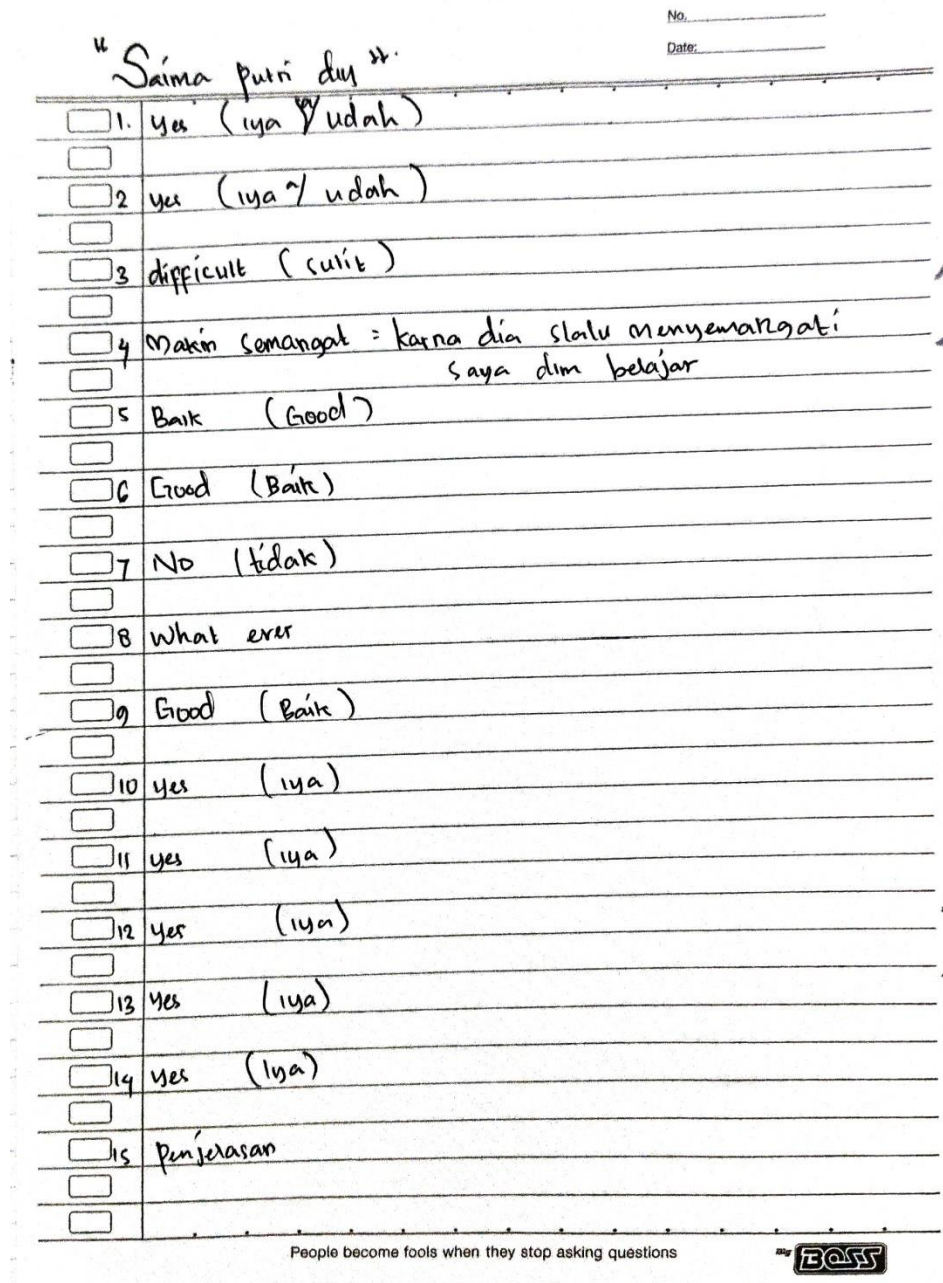 No.
Date:
"Saima putri duy"
1. yes (iya udah)
2 yes (iya udah)
3 difficult (sulit)
4 Makin semangat = karna dia slalu menyemangati
saya dlm belajar
5 Baik (Good)
6 Good (Baik)
7 No (tidak)
8 What ever
9 Good (Baik)
10 yes (iya)
11 yes (iya)
12 yes (iya)
13 yes (iya)
14 yes (Iya)
15 Penjelasan
People become fools when they stop asking questions
My BOSS